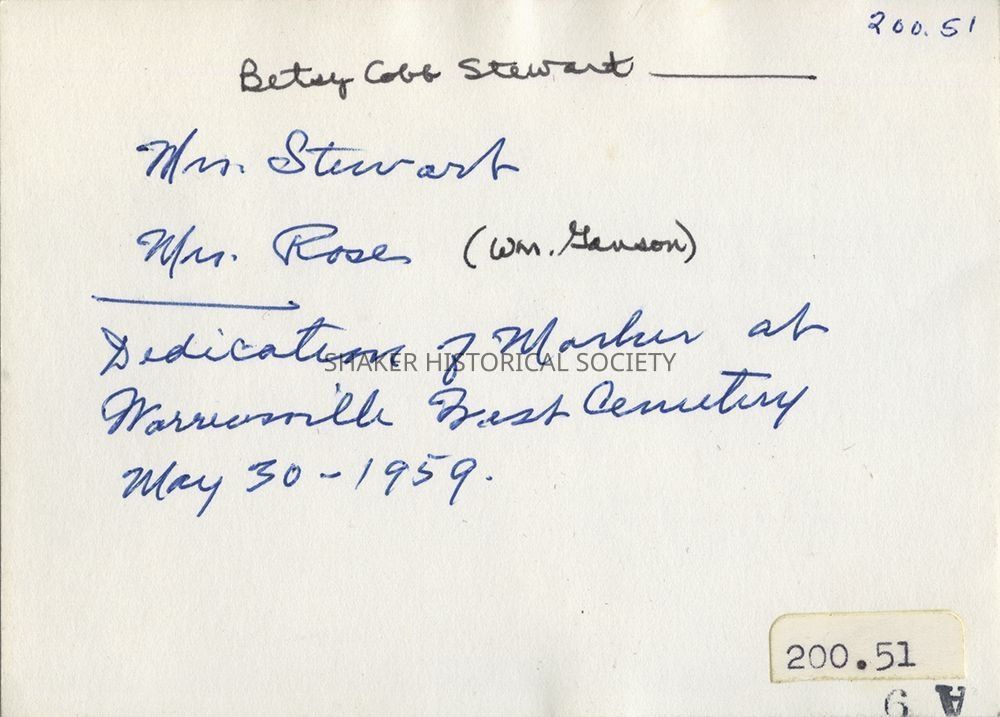 200.51
Betsy Cobb Stewart
Mrs. Stewart
Mrs. Rose (Wm. Ganson)
Dedication of Marker at
SHAKER HISTORICAL SOCIETY
Warrensville West Cemetery
May 30 - 1959.
200.51
A 9